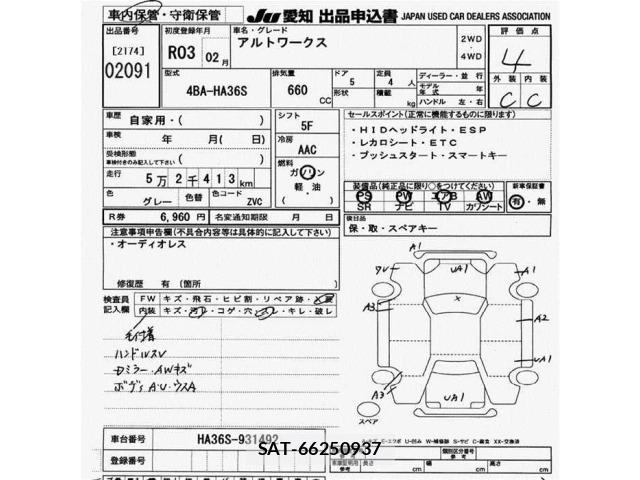 車内保管・守衛保管
JU 愛知 出品申込書 JAPAN USED CAR DEALERS ASSOCIATION
出品番号
[2174]
02091
初度登録年月
R03 02月
車名・グレード
アルトワークス
2WD
4WD
評価点
4
型式
4BA-HA36S
排気量
660 CC
ドア
5
定員
4 人
形状
積載
kg
ディーラー・並行
モデル年式 年
ハンドル 左・右
外装 内装
C C
車歴
自家用・(
車検
年 月( 日)
受検形態
車検付きのみ記入して下さい
走行
5万2千413km
色
グレー
色替
色コード
ZVC
シフト
5F
冷房
AAC
燃料
ガソリン
軽・油
( )
セールスポイント(正常に機能するものに限ります)
・HIDヘッドライト・ESP
・レカロシート・ETC
・プッシュスタート・スマートキー
装備品(純正品に限り○をつけてください)
PS PW エアB AW
SR ナビ TV カワシート
新車保証書
有・無
R券 6,960 円 名変通知期限 月 日
後日品
保・取・スペアキー
注意事項申告欄(不具合内容等は具体的に記入して下さい)
・オーディオレス
修復歴 有 (箇所 )
検査員記入欄
FW キズ・飛石・ヒビ割・リペア跡・
内装 キズ・汚レ・コゲ・穴・スレ・キレ・破レ
ハンドルスレ
ボディA・U・ウスA
A1
UA1
A1
A3
X
A2
UA1
A3
UA1
A1
スペア
車台番号
HA36S-931492
SAT-66250937
登録番号
車体証明用
参考
長さ cm
幅 cm
高さ cm
類別区分番号
参考